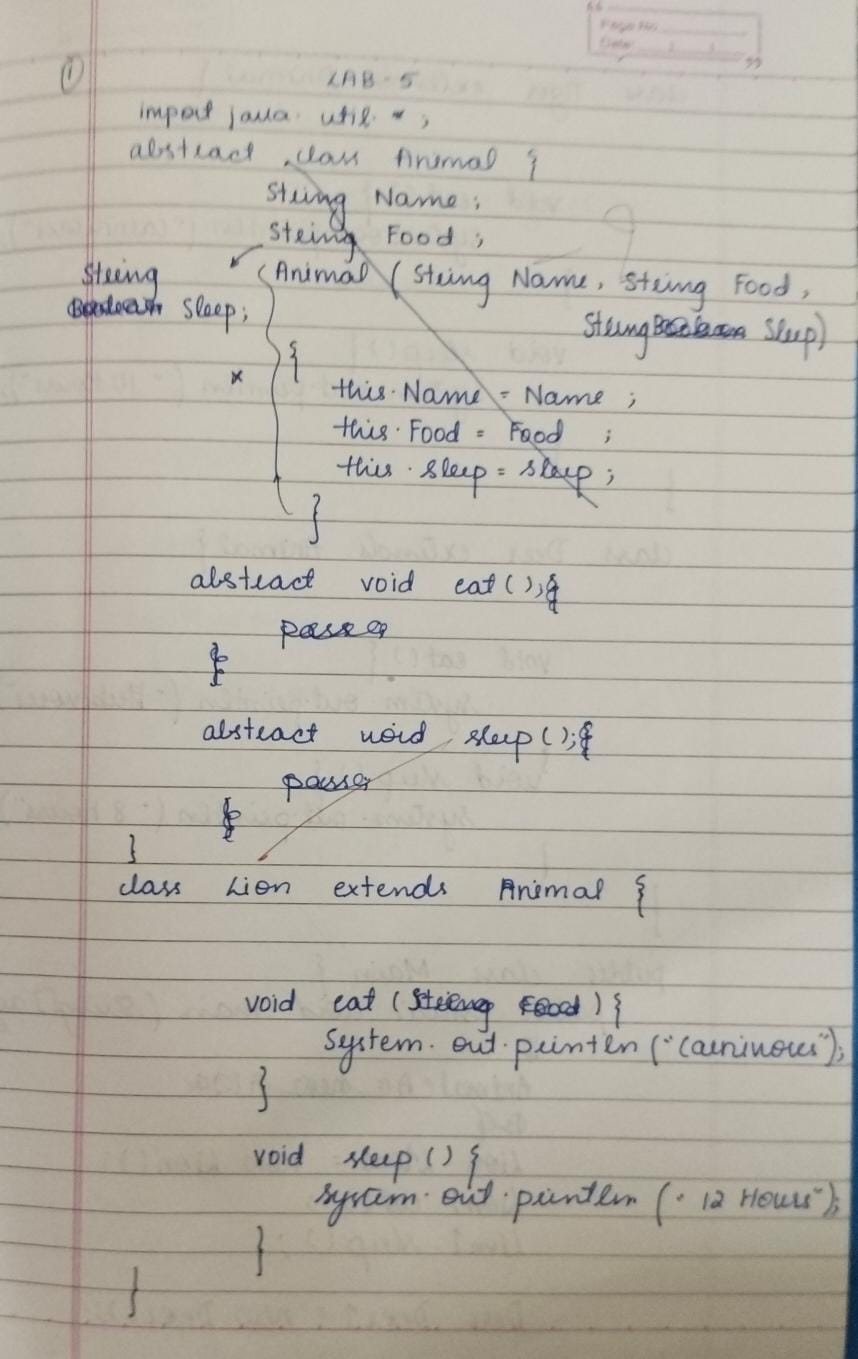 Page No.
Date
①
LAB-5
import java. util. *;
abstract class Animal {
String Name;
String Food;
String
Boolean Sleep;
Animal (String Name, String Food,
String Boolean Sleep)
*
{
this.Name = Name ;
this.Food = Food ;
this.sleep = sleep ;
}
abstract void eat();{
pass
}
abstract void sleep();{
pass
}
}
class Lion extends Animal {
void eat (String Food) {
System.out.println ("Carninorus");
}
void sleep () {
System.out.println (" 12 Hours");
}
}